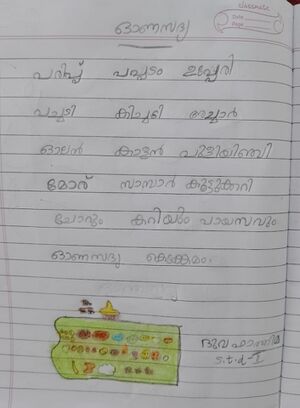 classmate
Date
Page
ഓണസദ്യ
പരിപ്പ് പപ്പടം ഉപ്പേരി
പച്ചടി കിച്ചടി അച്ചാർ
ഓലൻ കാളൻ പുളിയിഞ്ചി
മോര് സാമ്പാർ കൂട്ടുക്കറി
ചോറും കറിയും പായസവും
ഓണസദ്യ കെങ്കേമം.
ദുവ ഫാത്തിമ
s.t.d-I